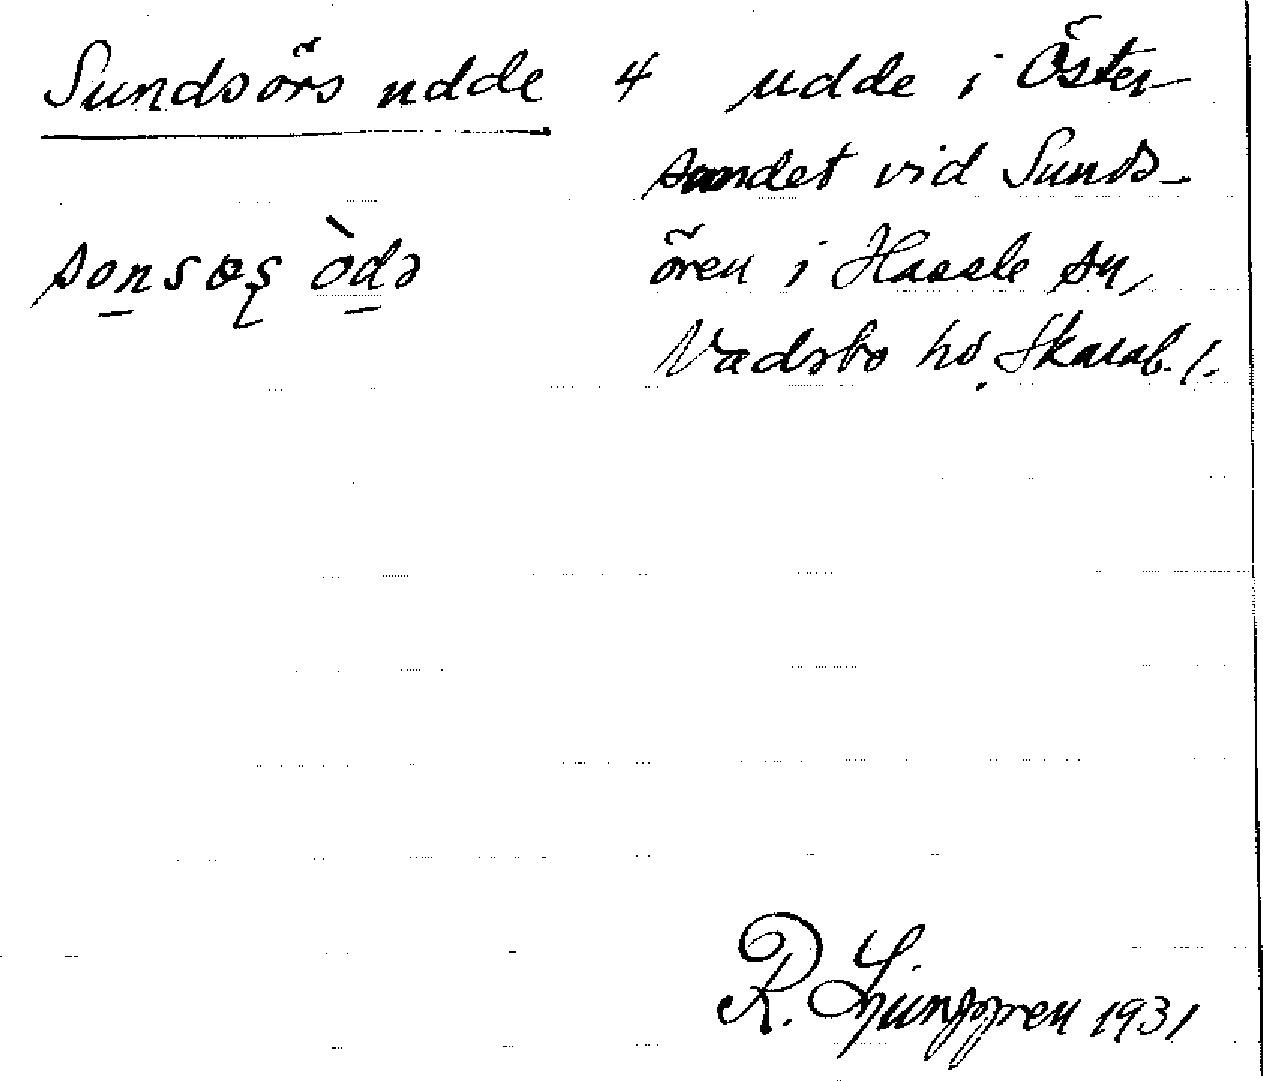 Sundsörs udde 4 udde i Öster
sundet vid Sunds-
ören i Hassle sn,
Vadsbo hd, Skarab. l.
R. Ljunggren 1931